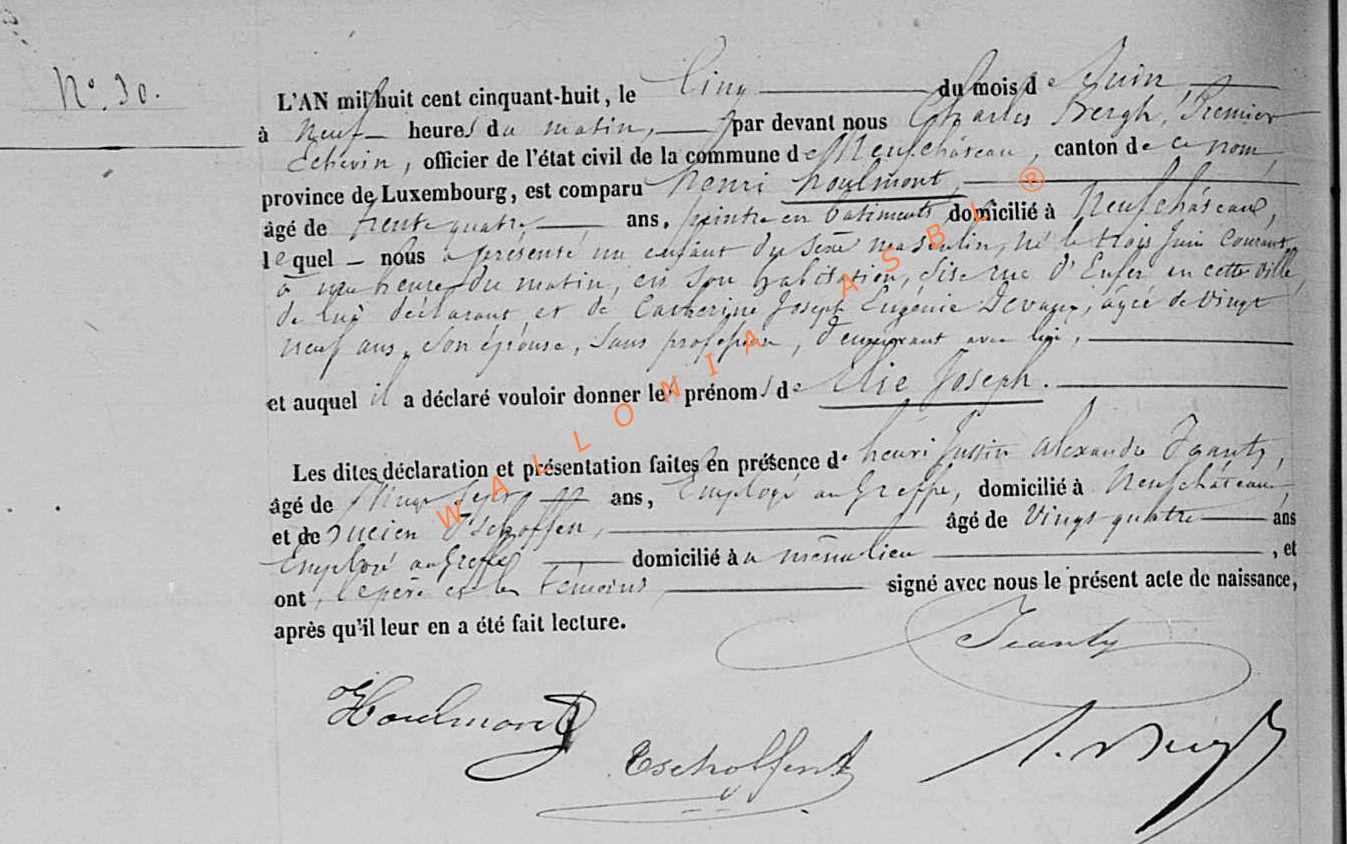 N° 30.
L'AN mil huit cent cinquant-huit, le Cinq du mois de Juin
à neuf heures du matin, par devant nous Charles Bergh, Premier
Echevin, officier de l'état civil de la commune de Neufchâteau, canton de ce nom,
province de Luxembourg, est comparu henri houlmont,
âgé de trente quatre ans, peintre en bâtiments domicilié à Neufchâteau,
lequel nous a présenté un enfant du sexe masculin, né le trois Juin courant,
à une heure du matin, en son habitation, sise rue d'Enfer en cette ville,
de lui déclarant et de Catherine Joseph Eugénie Devaux, âgée de vingt
neuf ans, son épouse, sans profession, demeurant avec lui,
et auquel il a déclaré vouloir donner les prénoms de Elie Joseph.
Les dites déclaration et présentation faites en présence de henri Justin alexandre Jeanty,
âgé de vingt sept ans, Employé au Greffe, domicilié à Neufchâteau,
et de Lucien Tschoffen, âgé de vingt quatre ans
Employé au Greffe domicilié à même lieu, et
ont, le père et les témoins, signé avec nous le présent acte de naissance,
après qu'il leur en a été fait lecture.
Jeanty
Houlmont
Tschoffen
WALLONIA ASBL ®